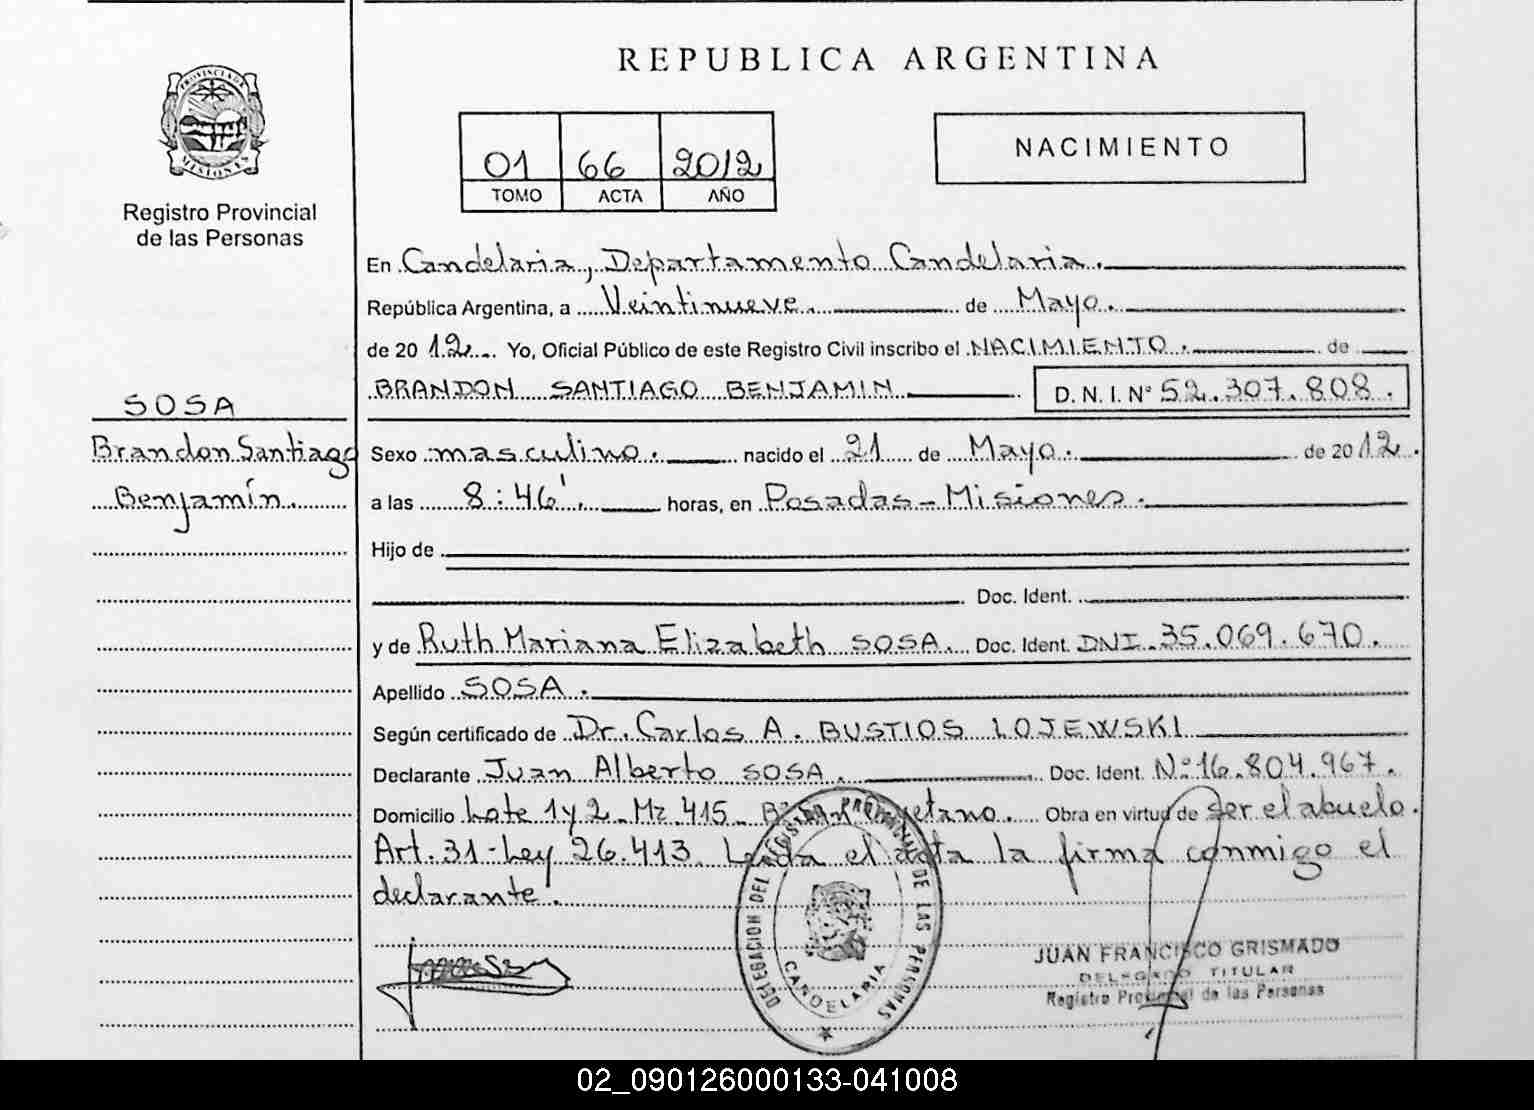 REPUBLICA ARGENTINA
PROVINCIA DE
MISIONES
Registro Provincial
de las Personas
01 66 2012
TOMO ACTA AÑO
NACIMIENTO
SOSA
Brandon Santiago
Benjamín.
En Candelaria, Departamento Candelaria.
República Argentina, a Veintinueve. de Mayo.
de 2012. Yo, Oficial Público de este Registro Civil inscribo el NACIMIENTO. de
BRANDON SANTIAGO BENJAMIN D. N. I. N° 52.307.808.
Sexo masculino. nacido el 21 de Mayo. de 2012.
a las 8:46'. horas, en Posadas-Misiones.
Hijo de
Doc. Ident.
y de Ruth Mariana Elizabeth SOSA. Doc. Ident. DNI. 35.069.670.
Apellido SOSA.
Según certificado de Dr. Carlos A. BUSTIOS LOJEWSKI
Declarante Juan Alberto SOSA. Doc. Ident. N°16.804.967.
Domicilio Lote 1y2_Mz.415_ Obra en virtud de ser el abuelo.
Art.31-Ley 26.413. Leída el acta la firma conmigo el
declarante.
DELEGACION DEL REGISTRO PROVINCIAL DE LAS PERSONAS
CANDELARIA
JUAN FRANCISCO GRISMADO
DELEGADO TITULAR
Registro Provincial de las Personas
02_090126000133-041008